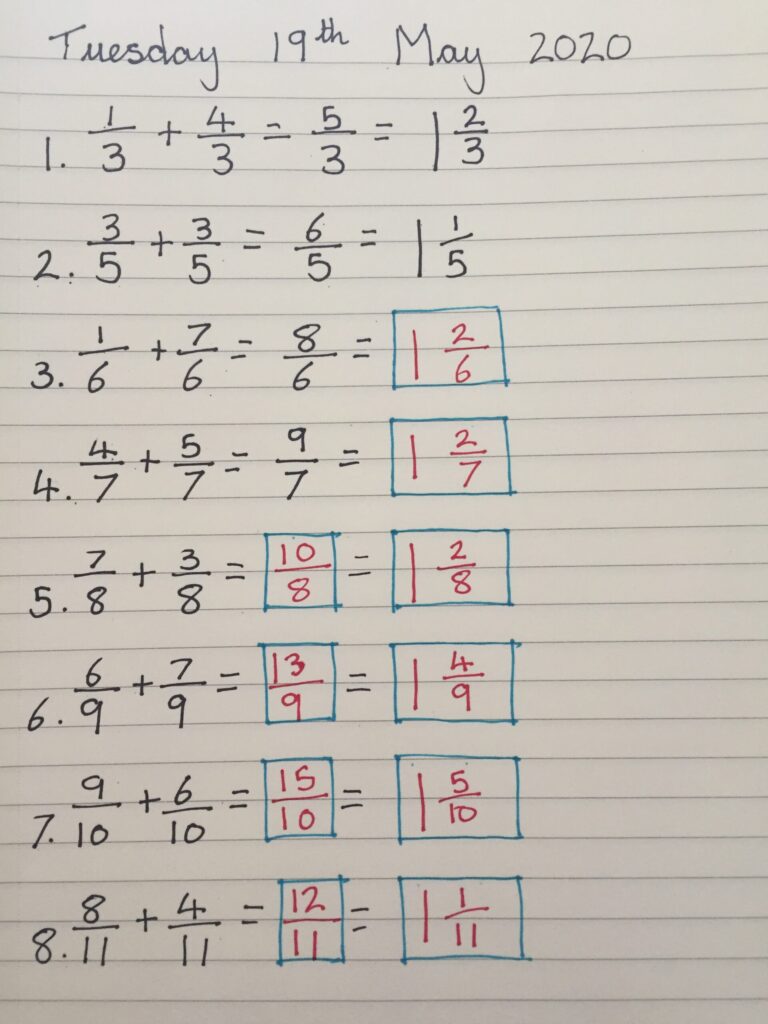 Tuesday 19th May 2020
1. 1/3 + 4/3 = 5/3 = 1 2/3
2. 3/5 + 3/5 = 6/5 = 1 1/5
3. 1/6 + 7/6 = 8/6 = 1 2/6
4. 4/7 + 5/7 = 9/7 = 1 2/7
5. 7/8 + 3/8 = 10/8 = 1 2/8
6. 6/9 + 7/9 = 13/9 = 1 4/9
7. 9/10 + 6/10 = 15/10 = 1 5/10
8. 8/11 + 4/11 = 12/11 = 1 1/11